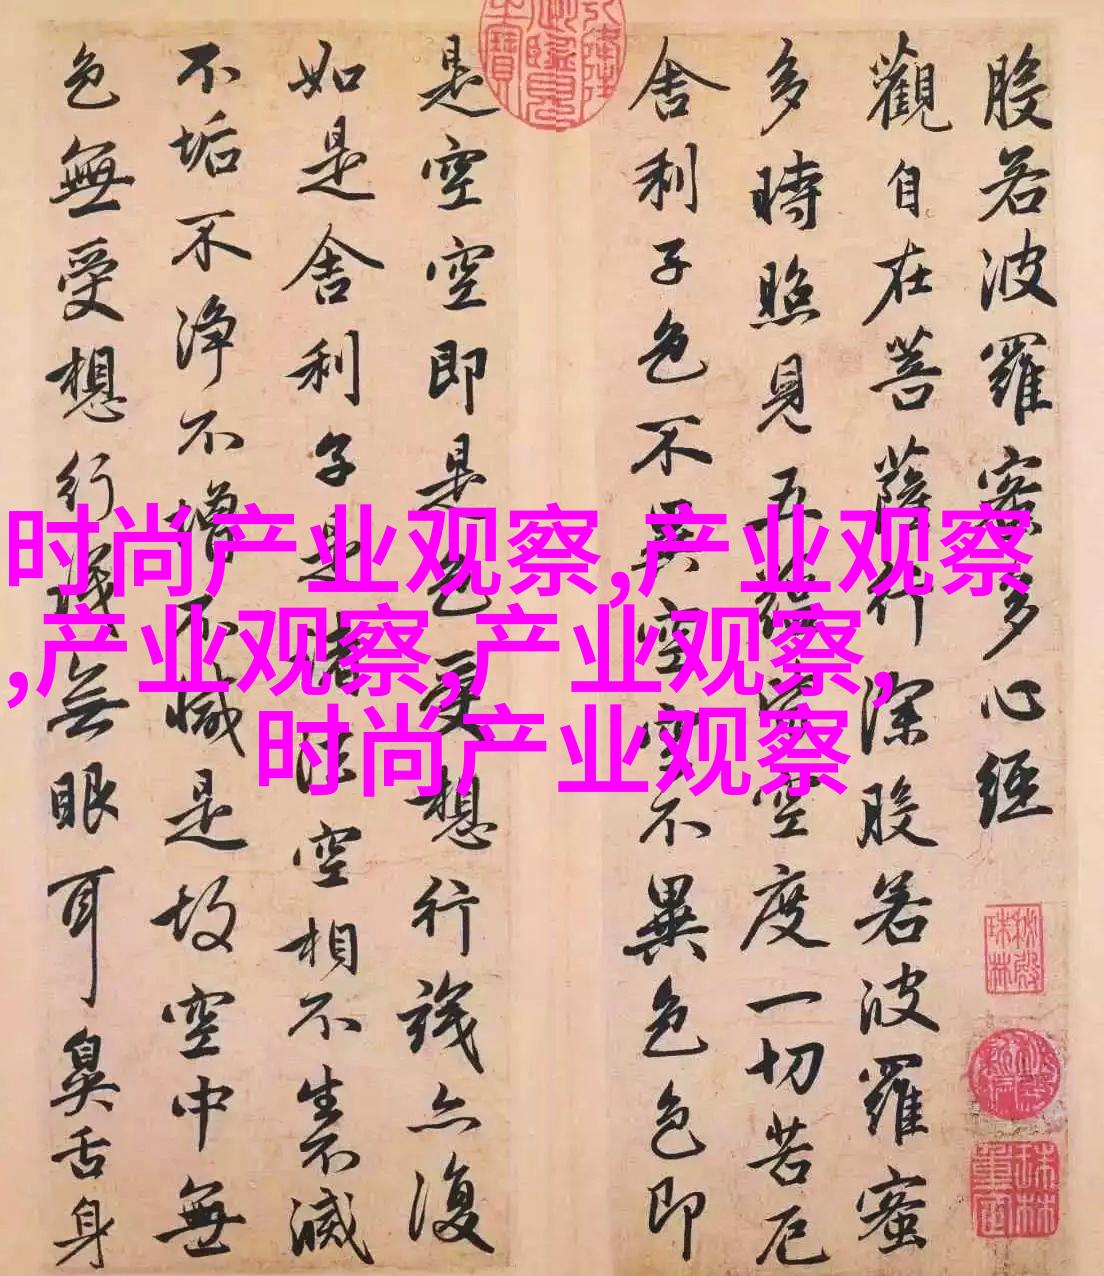 般若波羅蜜多心經
觀自在菩薩行深般若波羅蜜
多時照見五蘊皆空度一切苦厄
舍利子色不異空空不異色色即
是空空即是色受想行識亦復
如是舍利子是諸法空相不生不滅
不垢不净不增不減是故空中無
色無受想行識無眼耳鼻舌身
时尚产业观察,产业观察
,产业观察,产业观察,
时尚产业观察